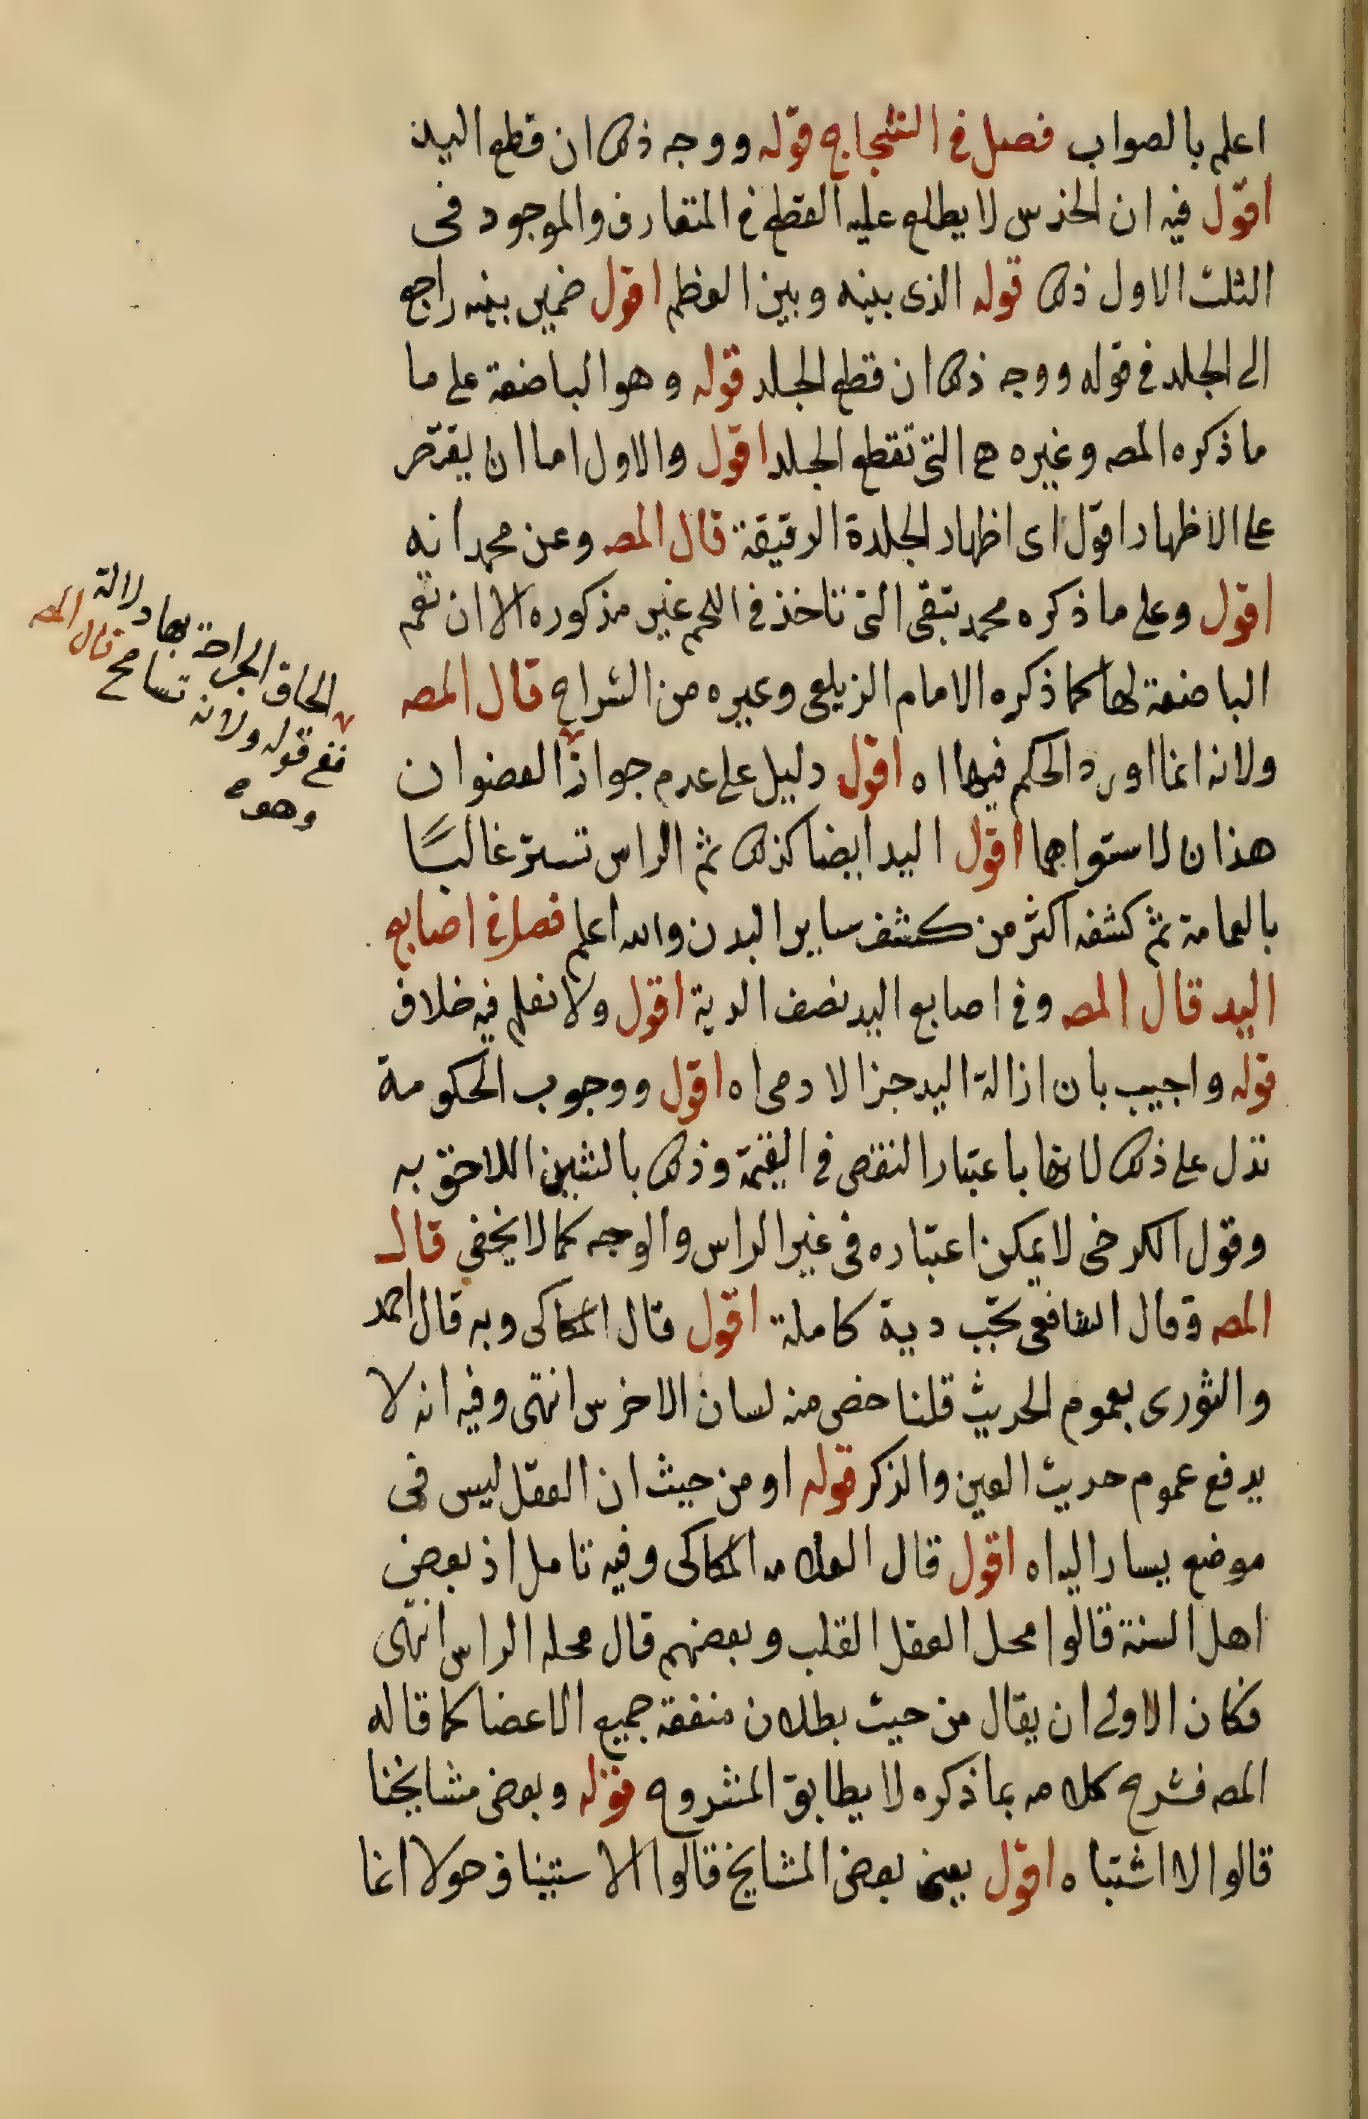 اعلم بالصواب فصل في الشجاج قوله ووجه ذلك ان قطع اليد
اقول فيه ان الخدس لا يطلع عليه القطع في المتعارف والموجود في
الثلث الاول ذلك قوله الذى بينه وبين العظم اقول ضمير بينه راجع
الى الجلد في قوله ووجه ذلك ان قطع الجلد قوله وهو الباضعة على ما
ما ذكره المصه وغيره هي التي تقطع الجلد اقول والاول اما ان يقتصر
على الاظهار اقول اى اظهار الجلدة الرقيقة قال المصه وعن محمد انه
اقول وعلى ما ذكره محمد تبقى التى تاخذ في اللحم غير مذكوره الا ان تعم
الباضعة لها كما ذكره الامام الزيلعى وغيره من الشراح قال المصه
ولانه انما اورد الحكم فيها اه اقول دليل على عدم جواز العضوان
هذان لا ستواهما اقول اليد ايضا كذلك ثم الراس تستر غالبًا
بالعمامة ثم كشفه اكثر من كشف ساير البدن والله اعلم فصل في اصابع
اليد قال المصه وفي اصابع اليد نصف الدية اقول ولا نعلم فيه خلاف
قوله واجيب بان ازالة اليد جزا لادمى اه اقول ووجوب الحكومة
تدل على ذلك لانها باعتبار النقص في القيمة وذلك بالشين اللاحق به
وقول الكرخى لا يمكن اعتباره في غير الراس والوجه كما لا يخفي قال
المصه وقال الشافعى تجب دية كاملة اقول قال الكاكى وبه قال احمد
والثورى بعموم الحديث قلنا خص منه لسان الاخرس انتهى وفيه انه لا
يدفع عموم حديث العين والذكر قوله او من حيث ان العقل ليس في
موضع يسار اليه اه اقول قال العلامه الكاكى وفيه تامل اذ بعض
اهل السنة قالوا محل العقل القلب وبعضهم قال محله الراس انتهى
فكان الاولى ان يقال من حيث بطلان منفعة جميع الاعضا كما قاله
المصه فشرح كلامه بما ذكره لا يطابق المشروح قوله وبعض مشايخنا
قالوا لا اشتباه اقول يعنى بعض المشايخ قالوا الاستيناف حولا انما
الحاق الجراحة بها دلالة
ففي قوله ولانه تسامح قال المصه
وهو